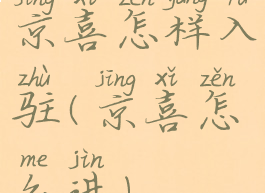 jīng xǐ zěn yàng rù
京喜怎样入
zhù jīng xǐ zěn
驻(京喜怎
me jìn
么进)